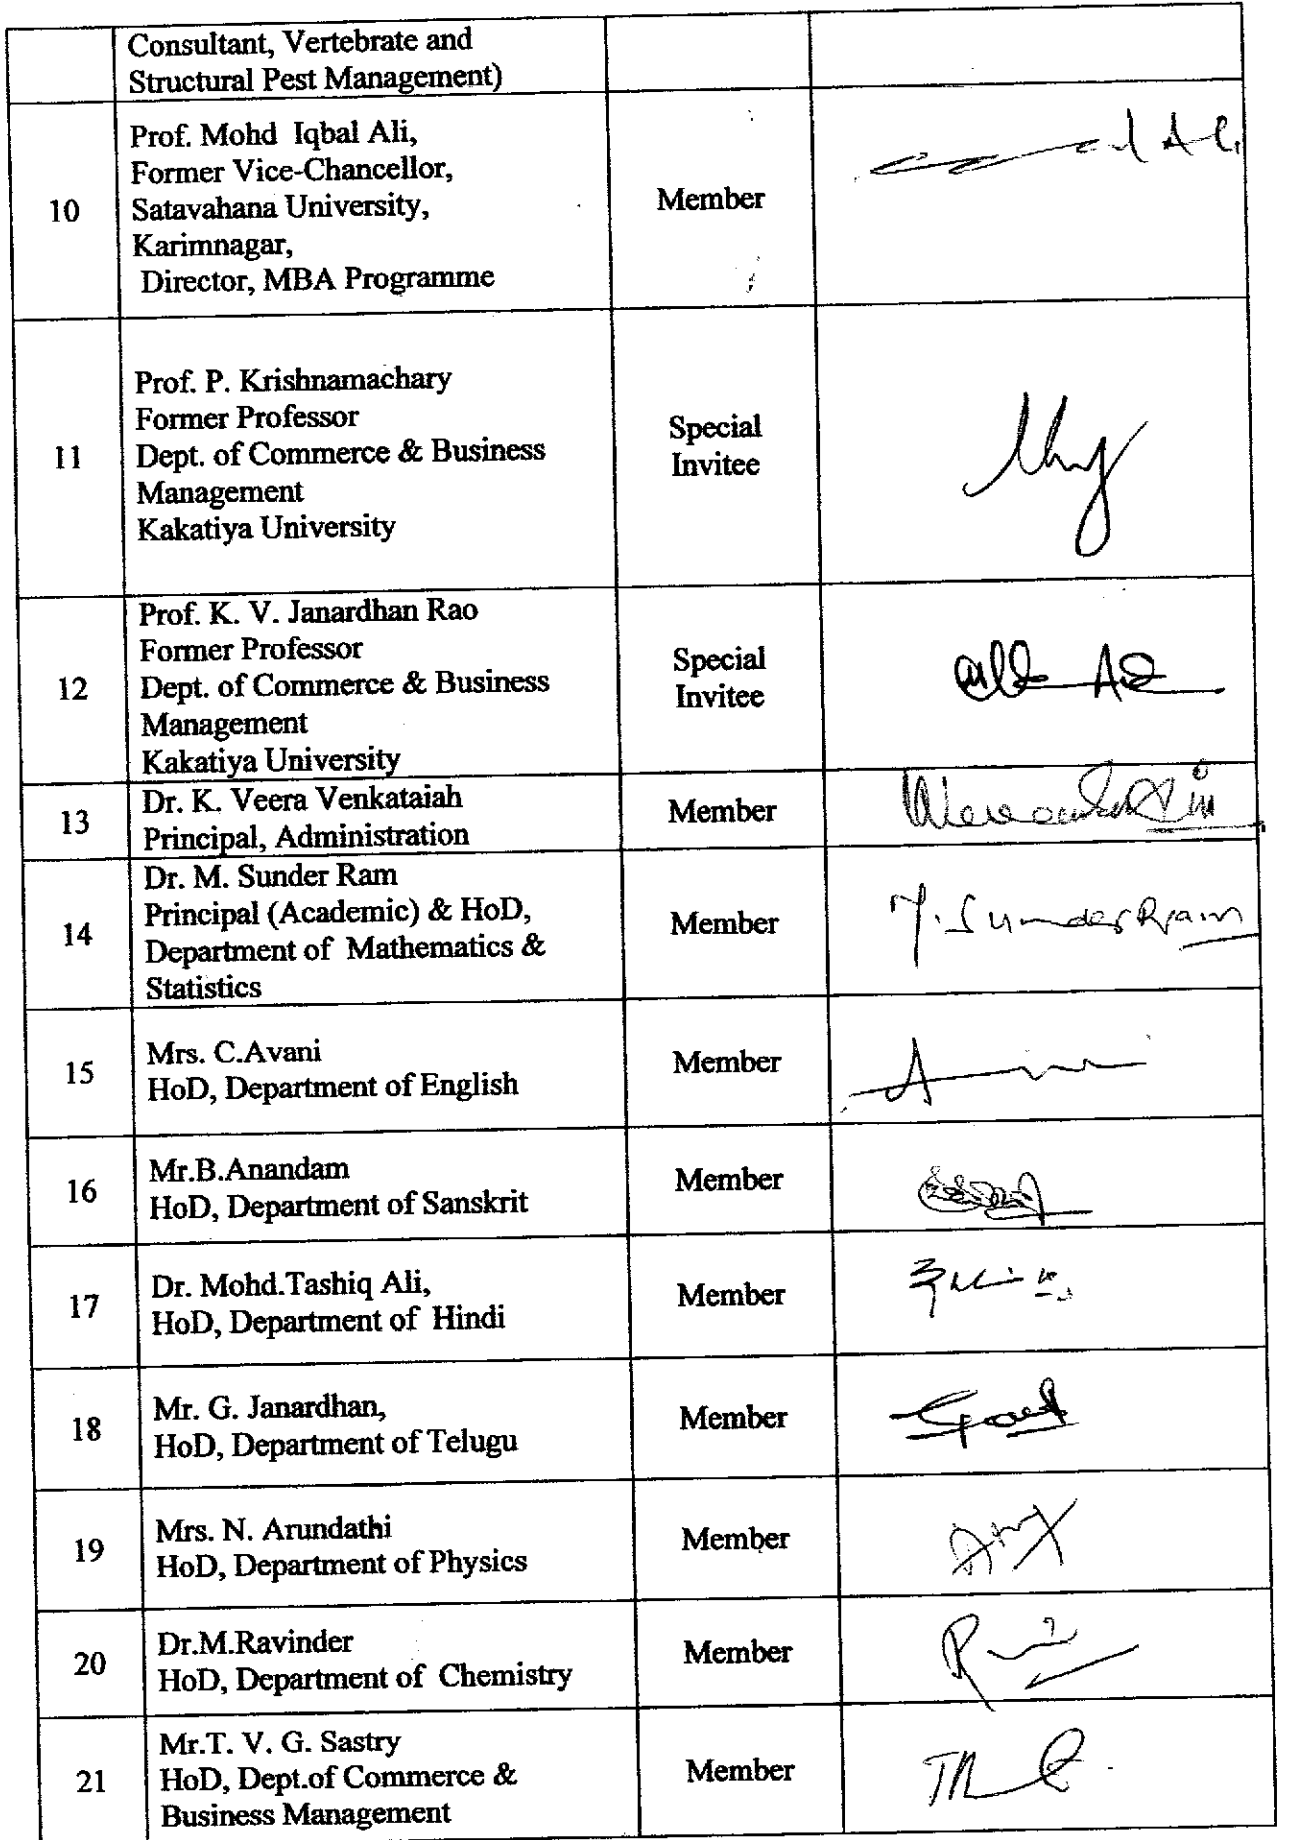 Consultant, Vertebrate and
Structural Pest Management)
10
Prof. Mohd Iqbal Ali,
Former Vice-Chancellor,
Satavahana University,
Karimnagar,
Director, MBA Programme
Member
11
Prof. P. Krishnamachary
Former Professor
Dept. of Commerce & Business
Management
Kakatiya University
Special
Invitee
12
Prof. K. V. Janardhan Rao
Former Professor
Dept. of Commerce & Business
Management
Kakatiya University
Special
Invitee
13
Dr. K. Veera Venkataiah
Principal, Administration
Member
14
Dr. M. Sunder Ram
Principal (Academic) & HoD,
Department of Mathematics &
Statistics
Member
M. Sunder Ram
15
Mrs. C.Avani
HoD, Department of English
Member
16
Mr.B.Anandam
HoD, Department of Sanskrit
Member
17
Dr. Mohd.Tashiq Ali,
HoD, Department of Hindi
Member
18
Mr. G. Janardhan,
HoD, Department of Telugu
Member
19
Mrs. N. Arundathi
HoD, Department of Physics
Member
20
Dr.M.Ravinder
HoD, Department of Chemistry
Member
21
Mr.T. V. G. Sastry
HoD, Dept.of Commerce &
Business Management
Member